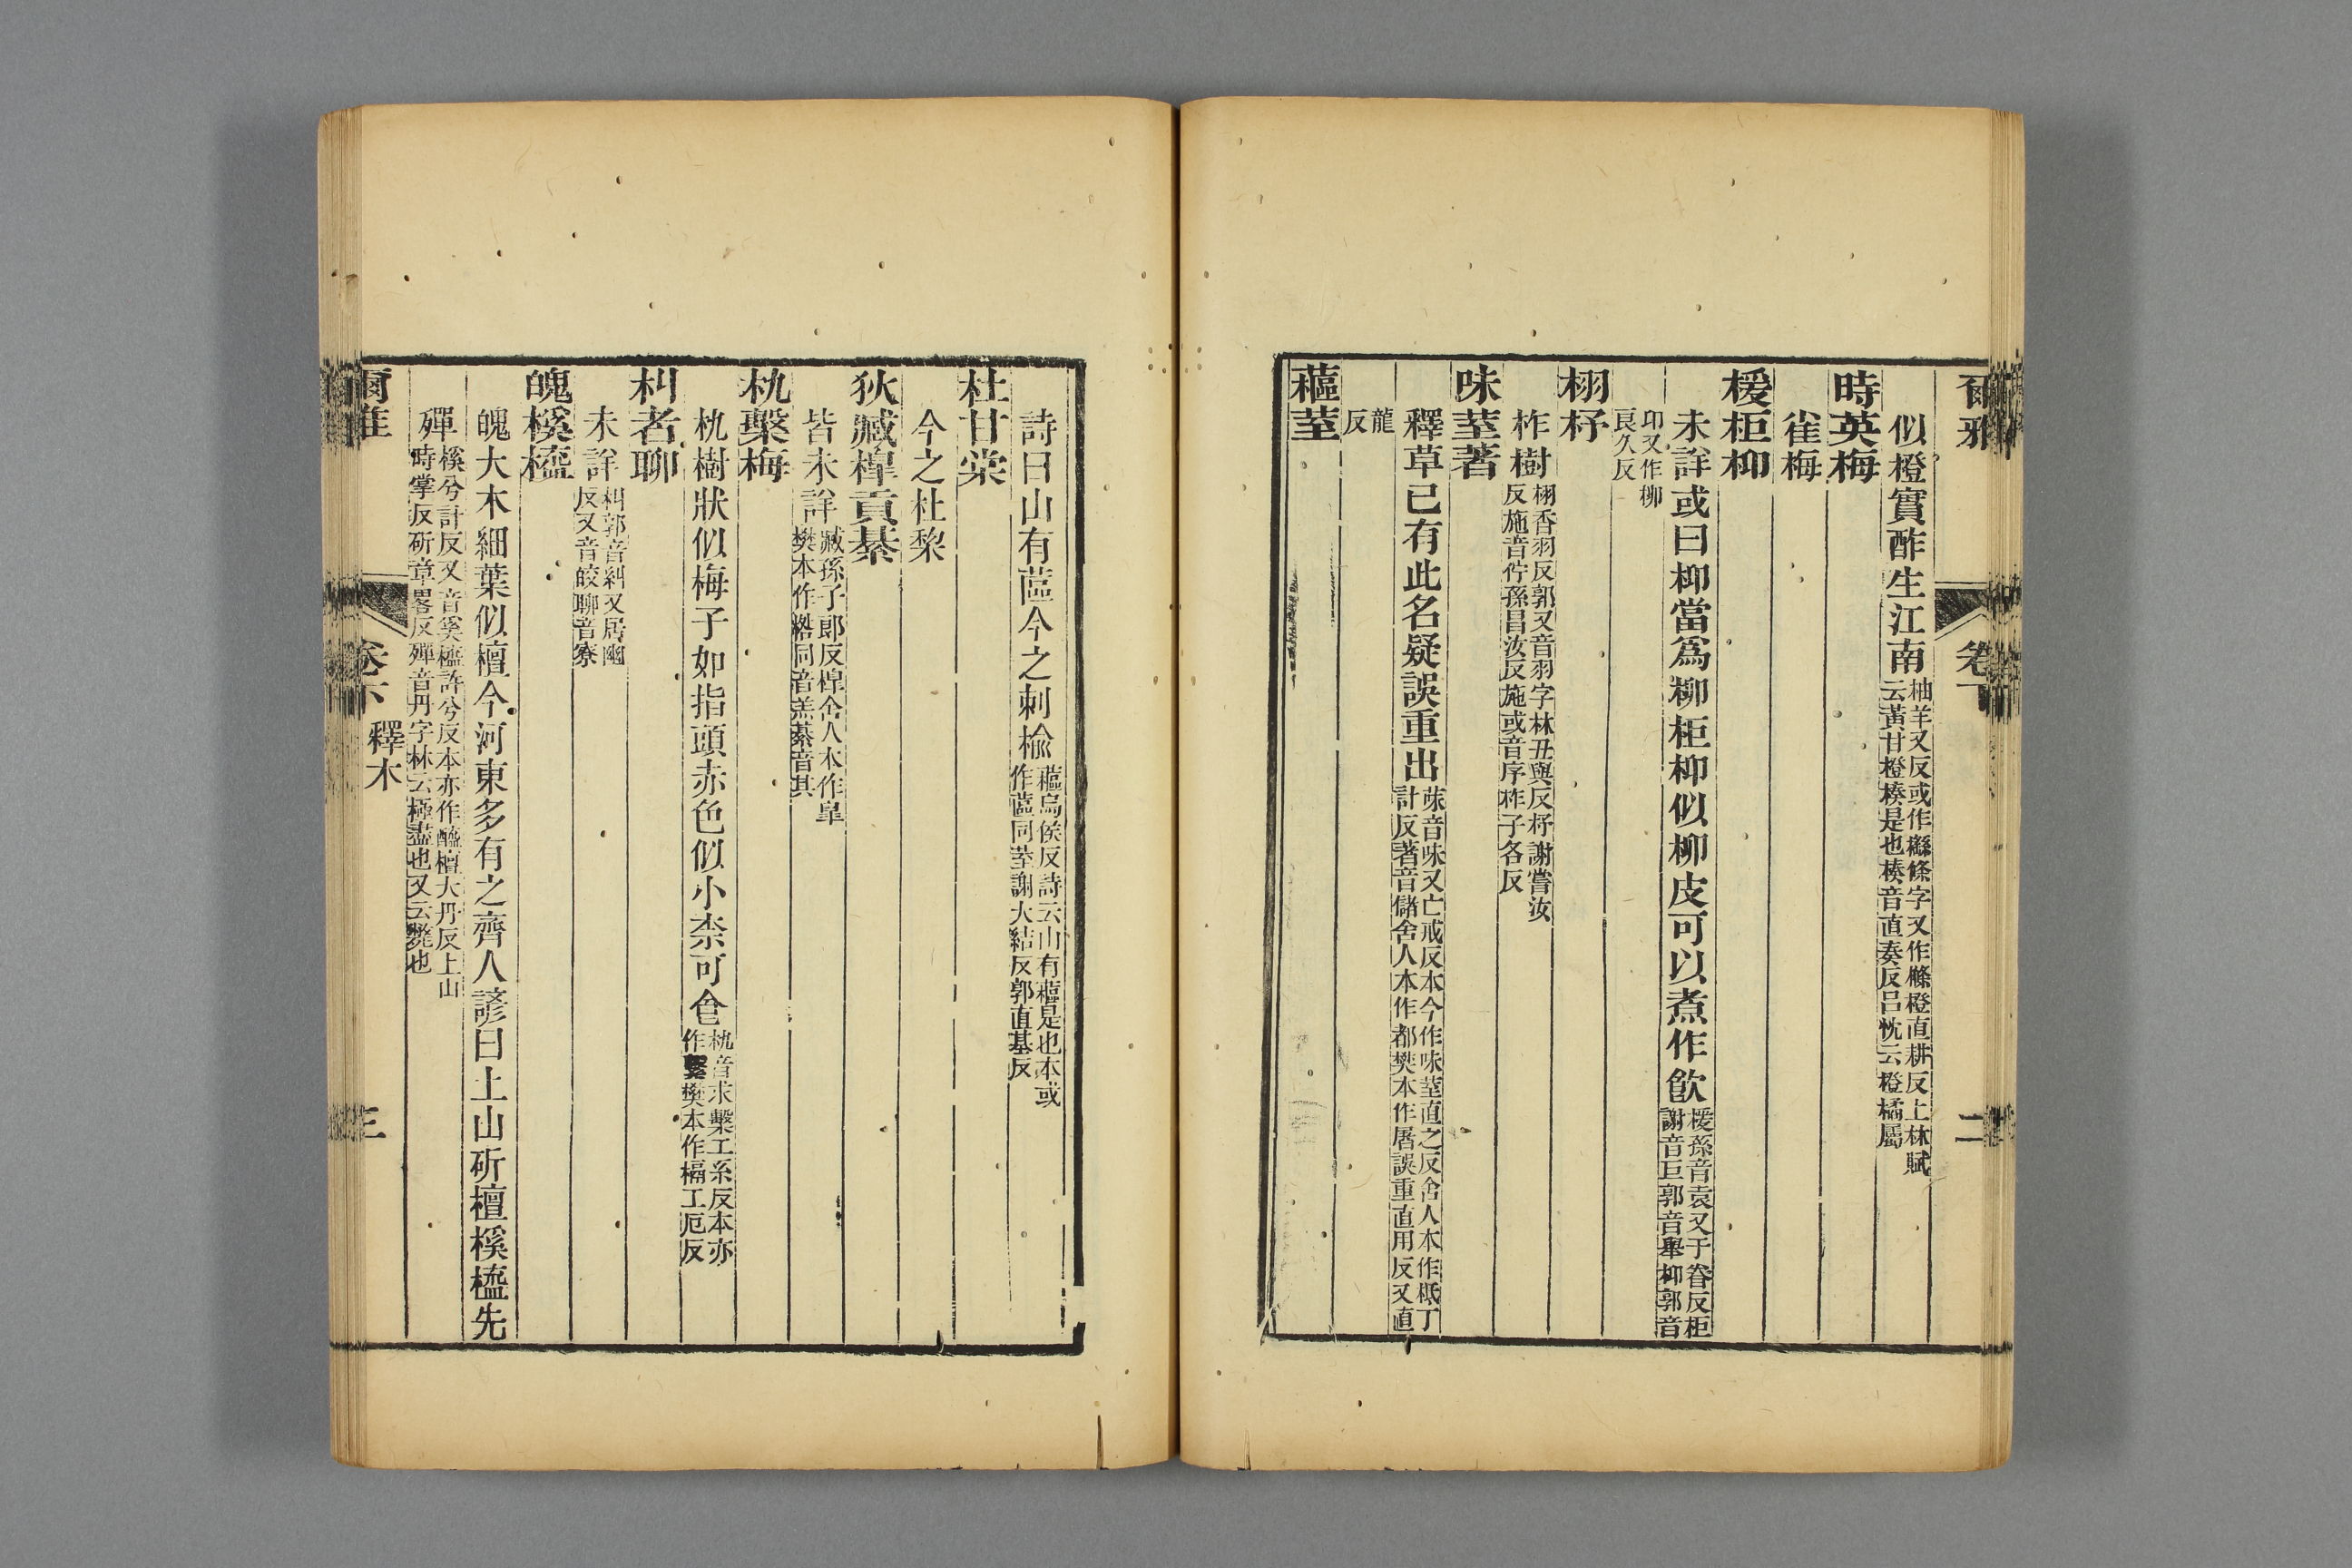 爾雅
卷下
二
似橙實酢生江南
柚羊又反或作櫾條字又作樤橙直耕反上林賦
云黃甘橙楱是也楱音直奏反呂忱云橙橘屬
時英梅
雀梅
楥柜桺
未詳或曰桺當爲柳柜桺似柳皮可以煮作飮
楥孫音袁又于眷反柜
謝音巨郭音舉桺郭音
卬又作柳
良久反
栩杼
柞樹
栩香羽反郭又音羽字林丑與反杼謝嘗汝
反施音佇孫昌汝反施或音序柞子各反
味荎著
釋草已有此名疑誤重出
菋音味又亡戒反本今作味荎直之反舍人本作柢丁
計反著音儲舍人本作都樊本作屠誤重直用反又直
龍
反
蓲荎
詩曰山有蓲今之刺楡
蓲烏侯反詩云山有蓲是也本或
作藲同荎謝大結反郭直基反
杜甘棠
今之杜棃
狄臧槔貢綦
皆未詳
臧孫子郎反槔舍人本作皐
樊本作榙同音羔綦音其
朹檕梅
朹樹狀似梅子如指頭赤色似小柰可食
朹音求檕工系反本亦
作繫樊本作槅工厄反
朻者聊
未詳
朻郭音糾又居幽
反又音皎聊音寮
魄榽橀
魄大木細葉似檀今河東多有之齊人諺曰上山斫檀榽橀先
殫
榽兮計反又音奚橀許兮反本亦作醯檀大丹反上山
時掌反斫章略反殫音丹字林云極盡也又云斃也
釋木
三